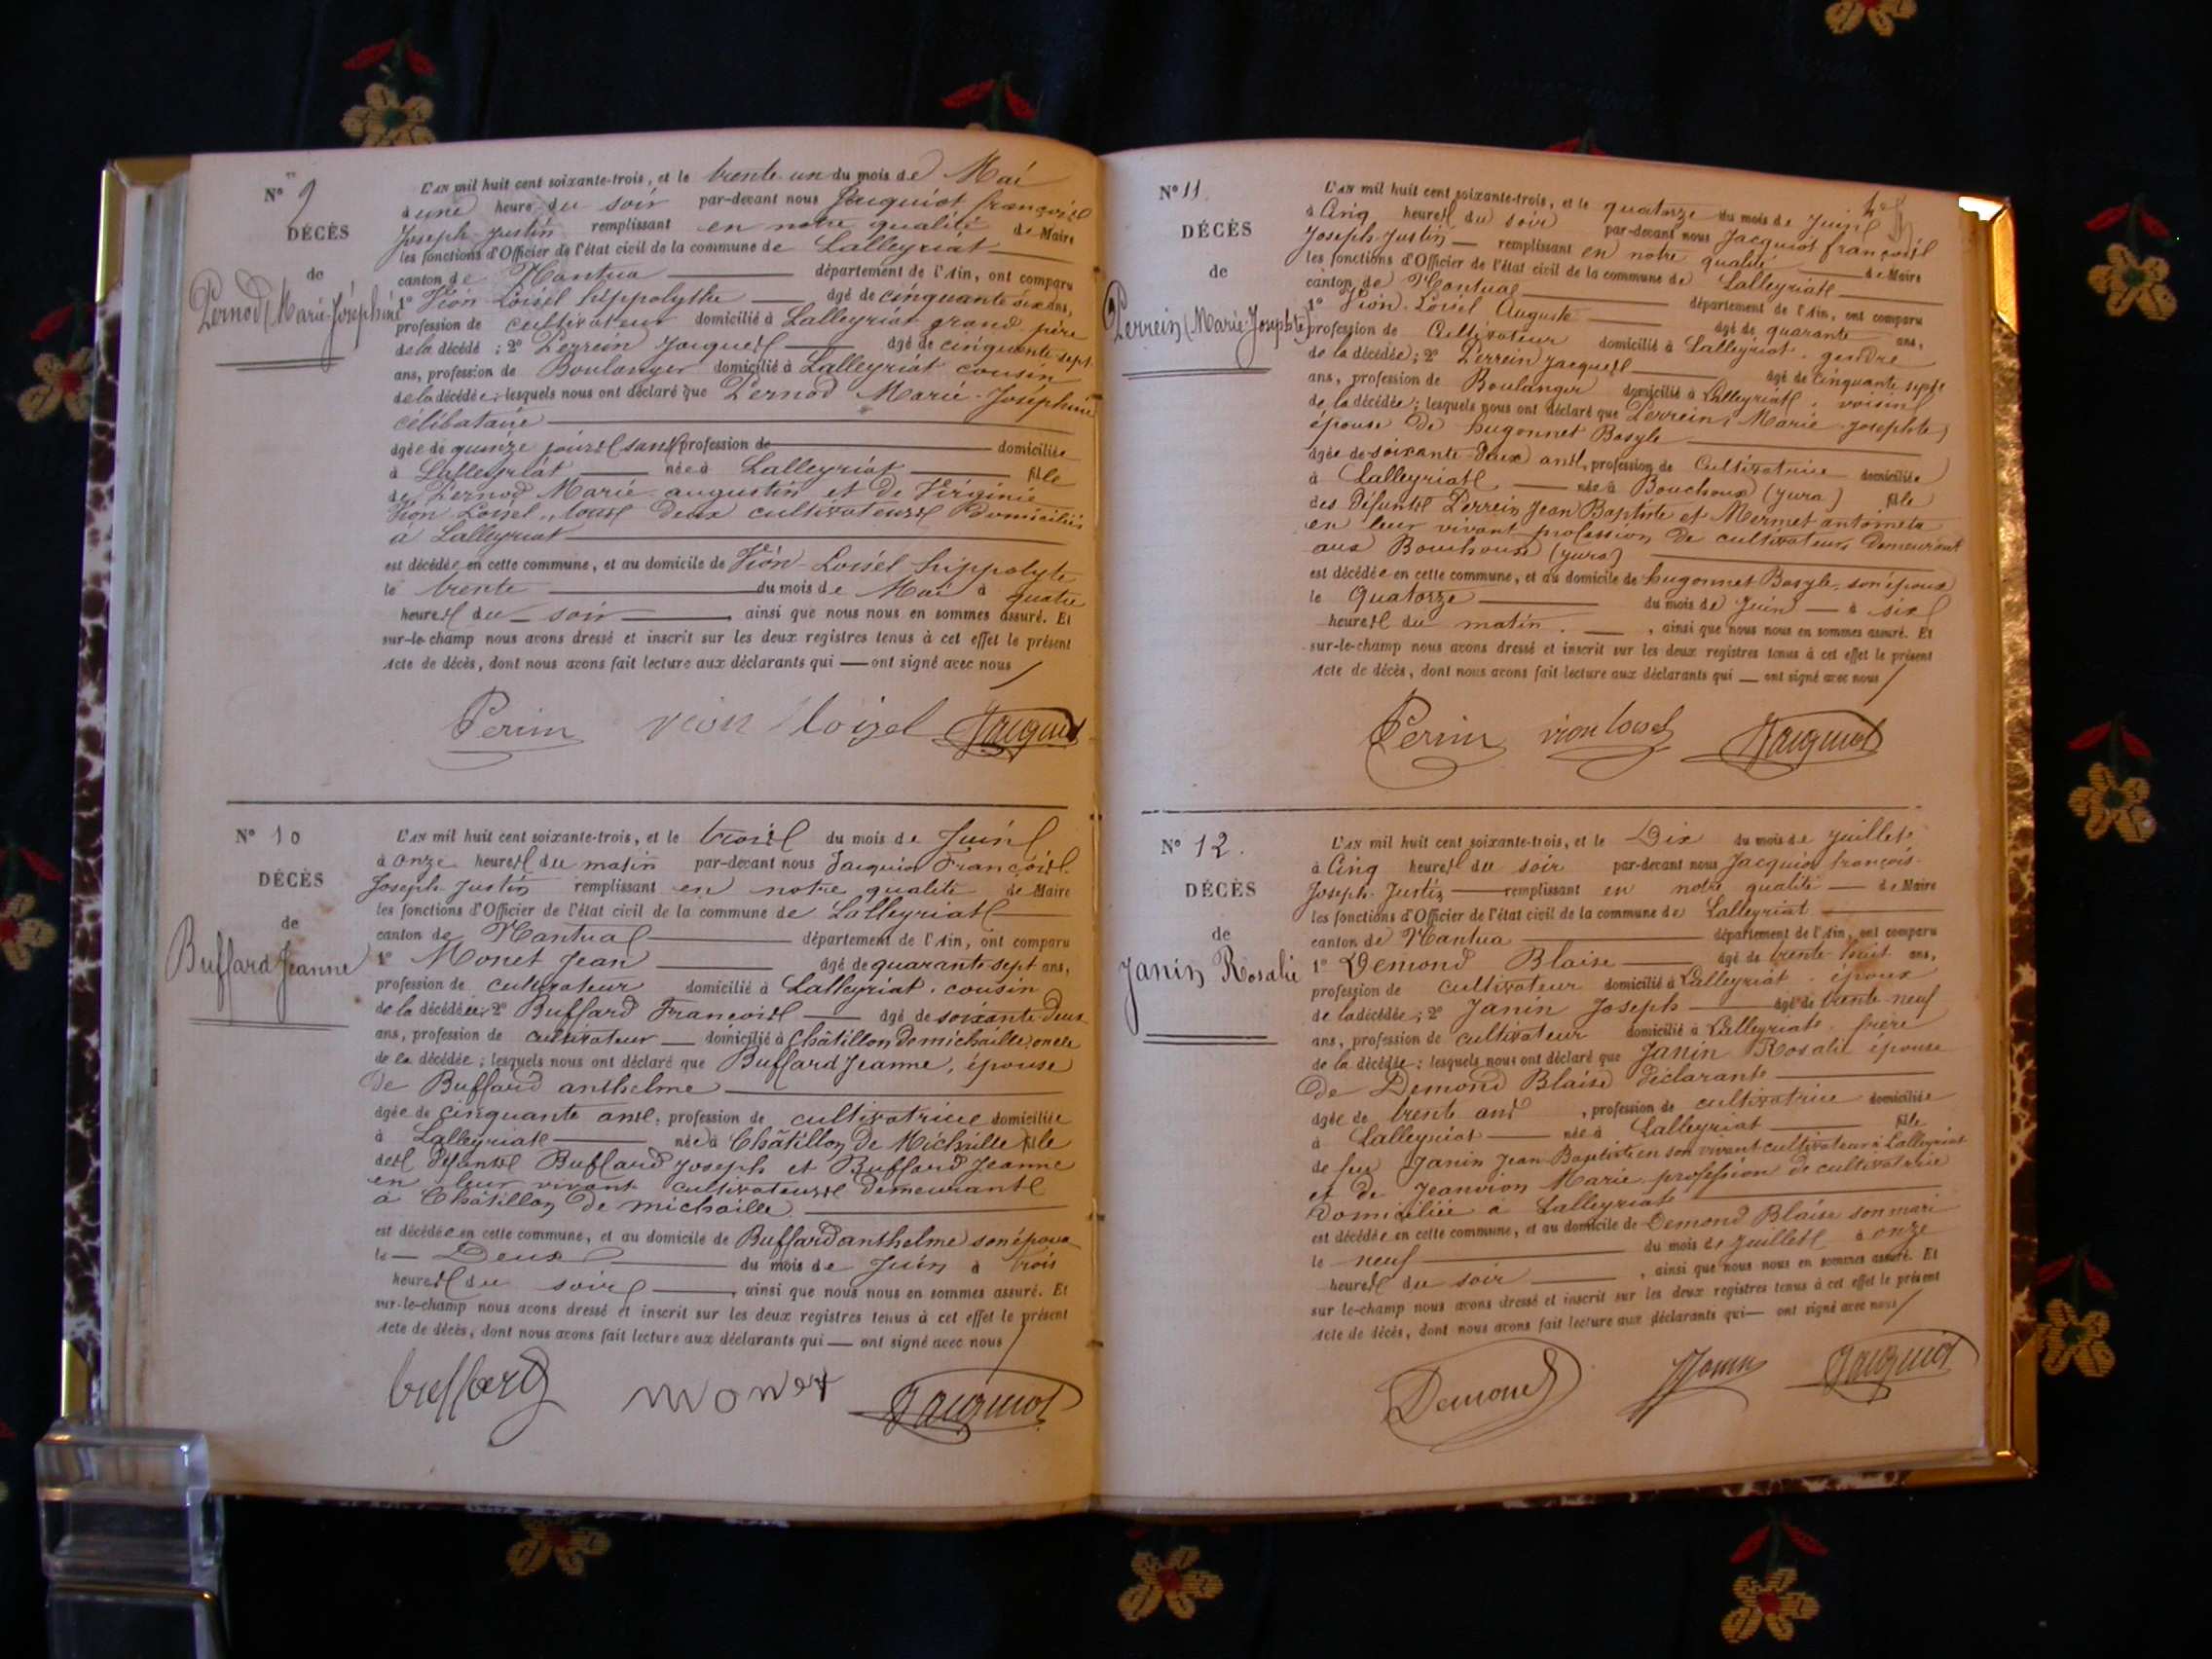 N° 9
DÉCÈS
de
Pernod (Marie-Joséphine)
L'AN mil huit cent soixante-trois, et le trente un du mois de Mai
à une heure du soir par-devant nous Jacquiot françois
Joseph-Justin remplissant en notre qualité de Maire
les fonctions d'Officier de l'état civil de la commune de Lalleyriat
canton de Nantua département de l'Ain, ont comparu
1° Vion-Loisel hippolythe âgé de cinquante six ans,
profession de cultivateur domicilié à Lalleyriat grand père
de la décédé ; 2° Perrein Jacques âgé de cinquante-sept
ans, profession de Boulanger domicilié à Lalleyriat cousin
de la décédée ; lesquels nous ont déclaré que Pernod Marie-Josephine
célibataire
âgée de quinze jours sans profession de domiciliée
à Lalleyriat née à Lalleyriat fille
de Pernod Marie-augustin et de Virginie
Vion-Loisel, tous deux cultivateurs domiciliés
à Lalleyriat
est décédée en cette commune, et au domicile de Vion-Loisel hippolyte
le trente du mois de Mai à quatre
heures du soir , ainsi que nous nous en sommes assuré. Et
sur-le-champ nous avons dressé et inscrit sur les deux registres tenus à cet effet le présent
Acte de décès, dont nous avons fait lecture aux déclarants qui — ont signé avec nous
Perin vion loizel Jacquiot
N° 10
DÉCÈS
de
Buffard Jeanne
L'AN mil huit cent soixante-trois, et le trois du mois de Juin
à onze heures du matin par-devant nous Jacquiot François
Joseph-Justin remplissant en notre qualité de Maire
les fonctions d'Officier de l'état civil de la commune de Lalleyriat
canton de Nantua département de l'Ain, ont comparu
1° Monet Jean âgé de quarante-sept ans,
profession de cultivateur domicilié à Lalleyriat. cousin
de la décédée ; 2° Buffard François âgé de soixante deux
ans, profession de cultivateur domicilié à Châtillon de michaille, oncle
de la décédée ; lesquels nous ont déclaré que Buffard Jeanne, épouse
de Buffard anthelme
âgée de cinquante ans, profession de cultivatrice domiciliée
à Lalleyriat née à Châtillon de Michaille fille
des défunts Buffard Joseph et Buffard Jeanne
en leur vivant cultivateurs demeurants
à Châtillon de michaille
est décédée en cette commune, et au domicile de Buffard anthelme son époux
le — Deux du mois de Juin à trois
heures du soir , ainsi que nous nous en sommes assuré. Et
sur-le-champ nous avons dressé et inscrit sur les deux registres tenus à cet effet le présent
Acte de décès, dont nous avons fait lecture aux déclarants qui — ont signé avec nous
buffard monet Jacquiot
N° 11
DÉCÈS
de
Perrein (Marie-Josephte)
L'AN mil huit cent soixante-trois, et le quatorze du mois de Juin
à Cinq heures du soir par-devant nous Jacquiot françois
Joseph-Justin — remplissant en notre qualité de Maire
les fonctions d'Officier de l'état civil de la commune de Lalleyriat
canton de Nantua département de l'Ain, ont comparu
1° Vion-Loisel Auguste âgé de quarante ans,
profession de Cultivateur domicilié à Lalleyriat. gendre
de la décédée ; 2° Perrein Jacques âgé de cinquante sept
ans, profession de Boulanger domicilié à Lalleyriat. voisin
de la décédée ; lesquels nous ont déclaré que Perrein, Marie-Josephte
épouse de hugonnet Basyle
âgée de soixante-Deux ans, profession de Cultivatrice domiciliée
à Lalleyriat née à Bouchoux (jura) fille
des défunts Perrein Jean Baptiste et Mermet antoineta
en leur vivant profession de cultivateurs demeurant
aux Bouchoux (jura)
est décédée en cette commune, et au domicile de hugonnet Basyle, son époux
le Quatorze du mois de Juin — à six
heures du matin. , ainsi que nous nous en sommes assuré. Et
sur-le-champ nous avons dressé et inscrit sur les deux registres tenus à cet effet le présent
Acte de décès, dont nous avons fait lecture aux déclarants qui — ont signé avec nous
Perin vion loisel Jacquiot
N° 12.
DÉCÈS
de
Janin Rosalie
L'AN mil huit cent soixante-trois, et le Dix du mois de Juillet
à Cinq heures du soir par-devant nous Jacquiot françois
Joseph-Justin — remplissant en notre qualité — de Maire
les fonctions d'Officier de l'état civil de la commune de Lalleyriat
canton de Nantua département de l'Ain, ont comparu
1° Demond Blaise âgé de trente huit ans,
profession de cultivateur domicilié à Lalleyriat. époux
de la décédée ; 2° Janin Joseph âgé de trente-neuf
ans, profession de cultivateur domicilié à Lalleyriat. frère
de la décédée ; lesquels nous ont déclaré que Janin Rosalie épouse
de Demond Blaise déclarant
âgée de trente ans , profession de cultivatrice domiciliée
à Lalleyriat née à Lalleyriat fille
de feu Janin Jean-Baptiste en son vivant cultivateur à Lalleyriat
et de Jeanvion Marie profession de cultivatrice
domiciliée à Lalleyriat
est décédée en cette commune, et au domicile de Demond Blaise son mari
le neuf du mois de Juillet à onze
heures du soir , ainsi que nous nous en sommes assuré. Et
sur-le-champ nous avons dressé et inscrit sur les deux registres tenus à cet effet le présent
Acte de décès, dont nous avons fait lecture aux déclarants qui — ont signé avec nous
Demond Janin Jacquiot